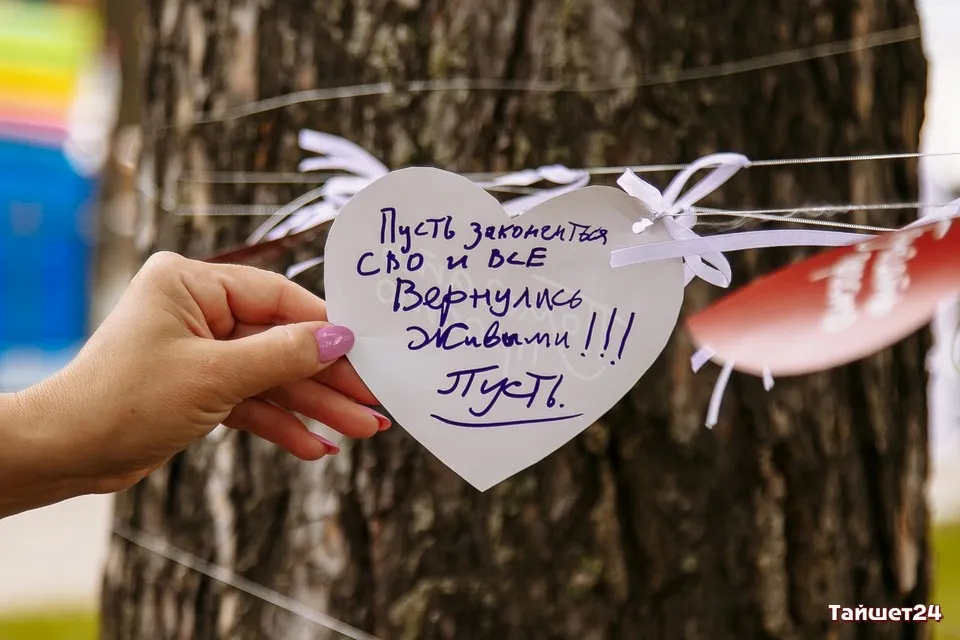 Пусть закончиться
СВО и ВСЕ
Вернулись
Живыми!!!
Пусть.
Тайшет24